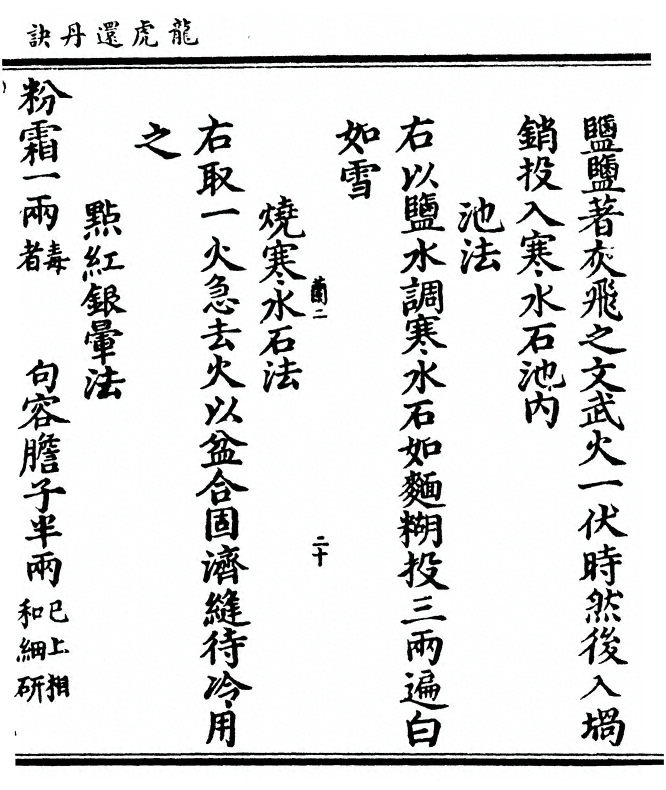 龍虎還丹訣
鹽鹽著灰飛之文武火一伏時然後入堝
銷投入寒水石池內
池法
右以鹽水調寒水石如麵糊投三兩遍白
如雪
蘭二 二十
燒寒水石法
右取一火急去火以盆合固濟縫待冷用
之
點紅銀暈法
粉霜一兩毒者 句容膽子半兩已上相和細研